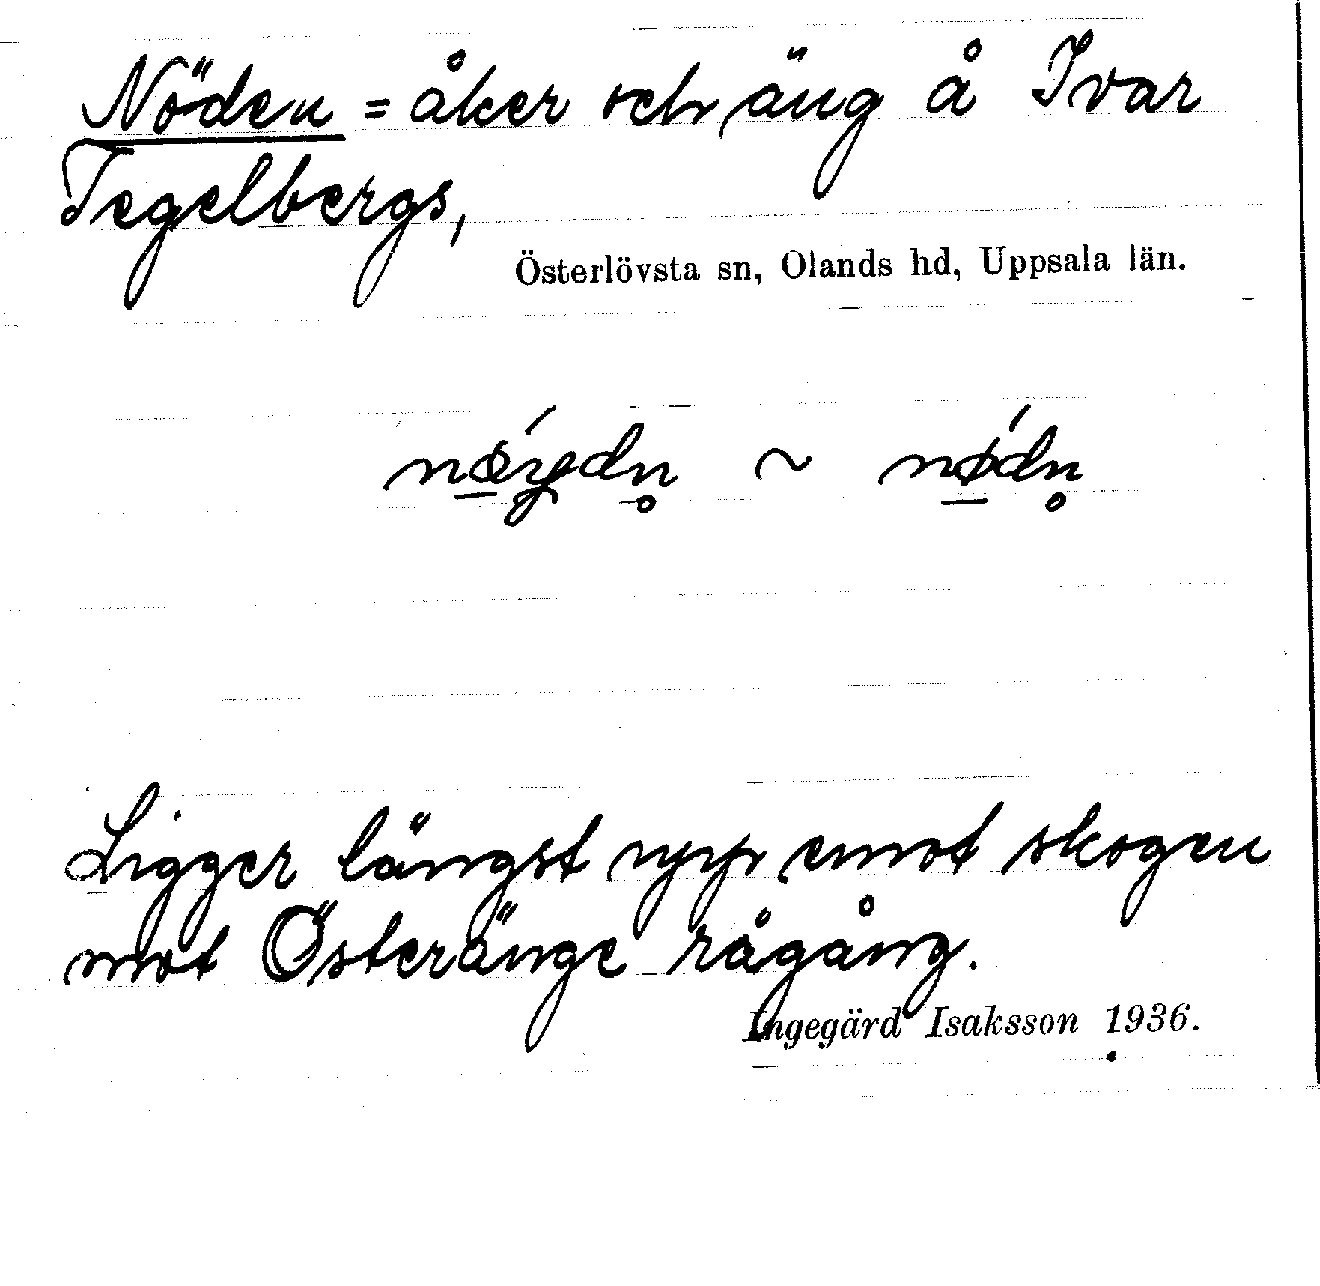 Nöden = åker och äng å Ivar
Tegelbergs,
Österlövsta sn, Olands hd, Uppsala län.
~
Ligger längst upp emot skogen
mot Österänge rågång.
Ingegärd Isaksson 1936.